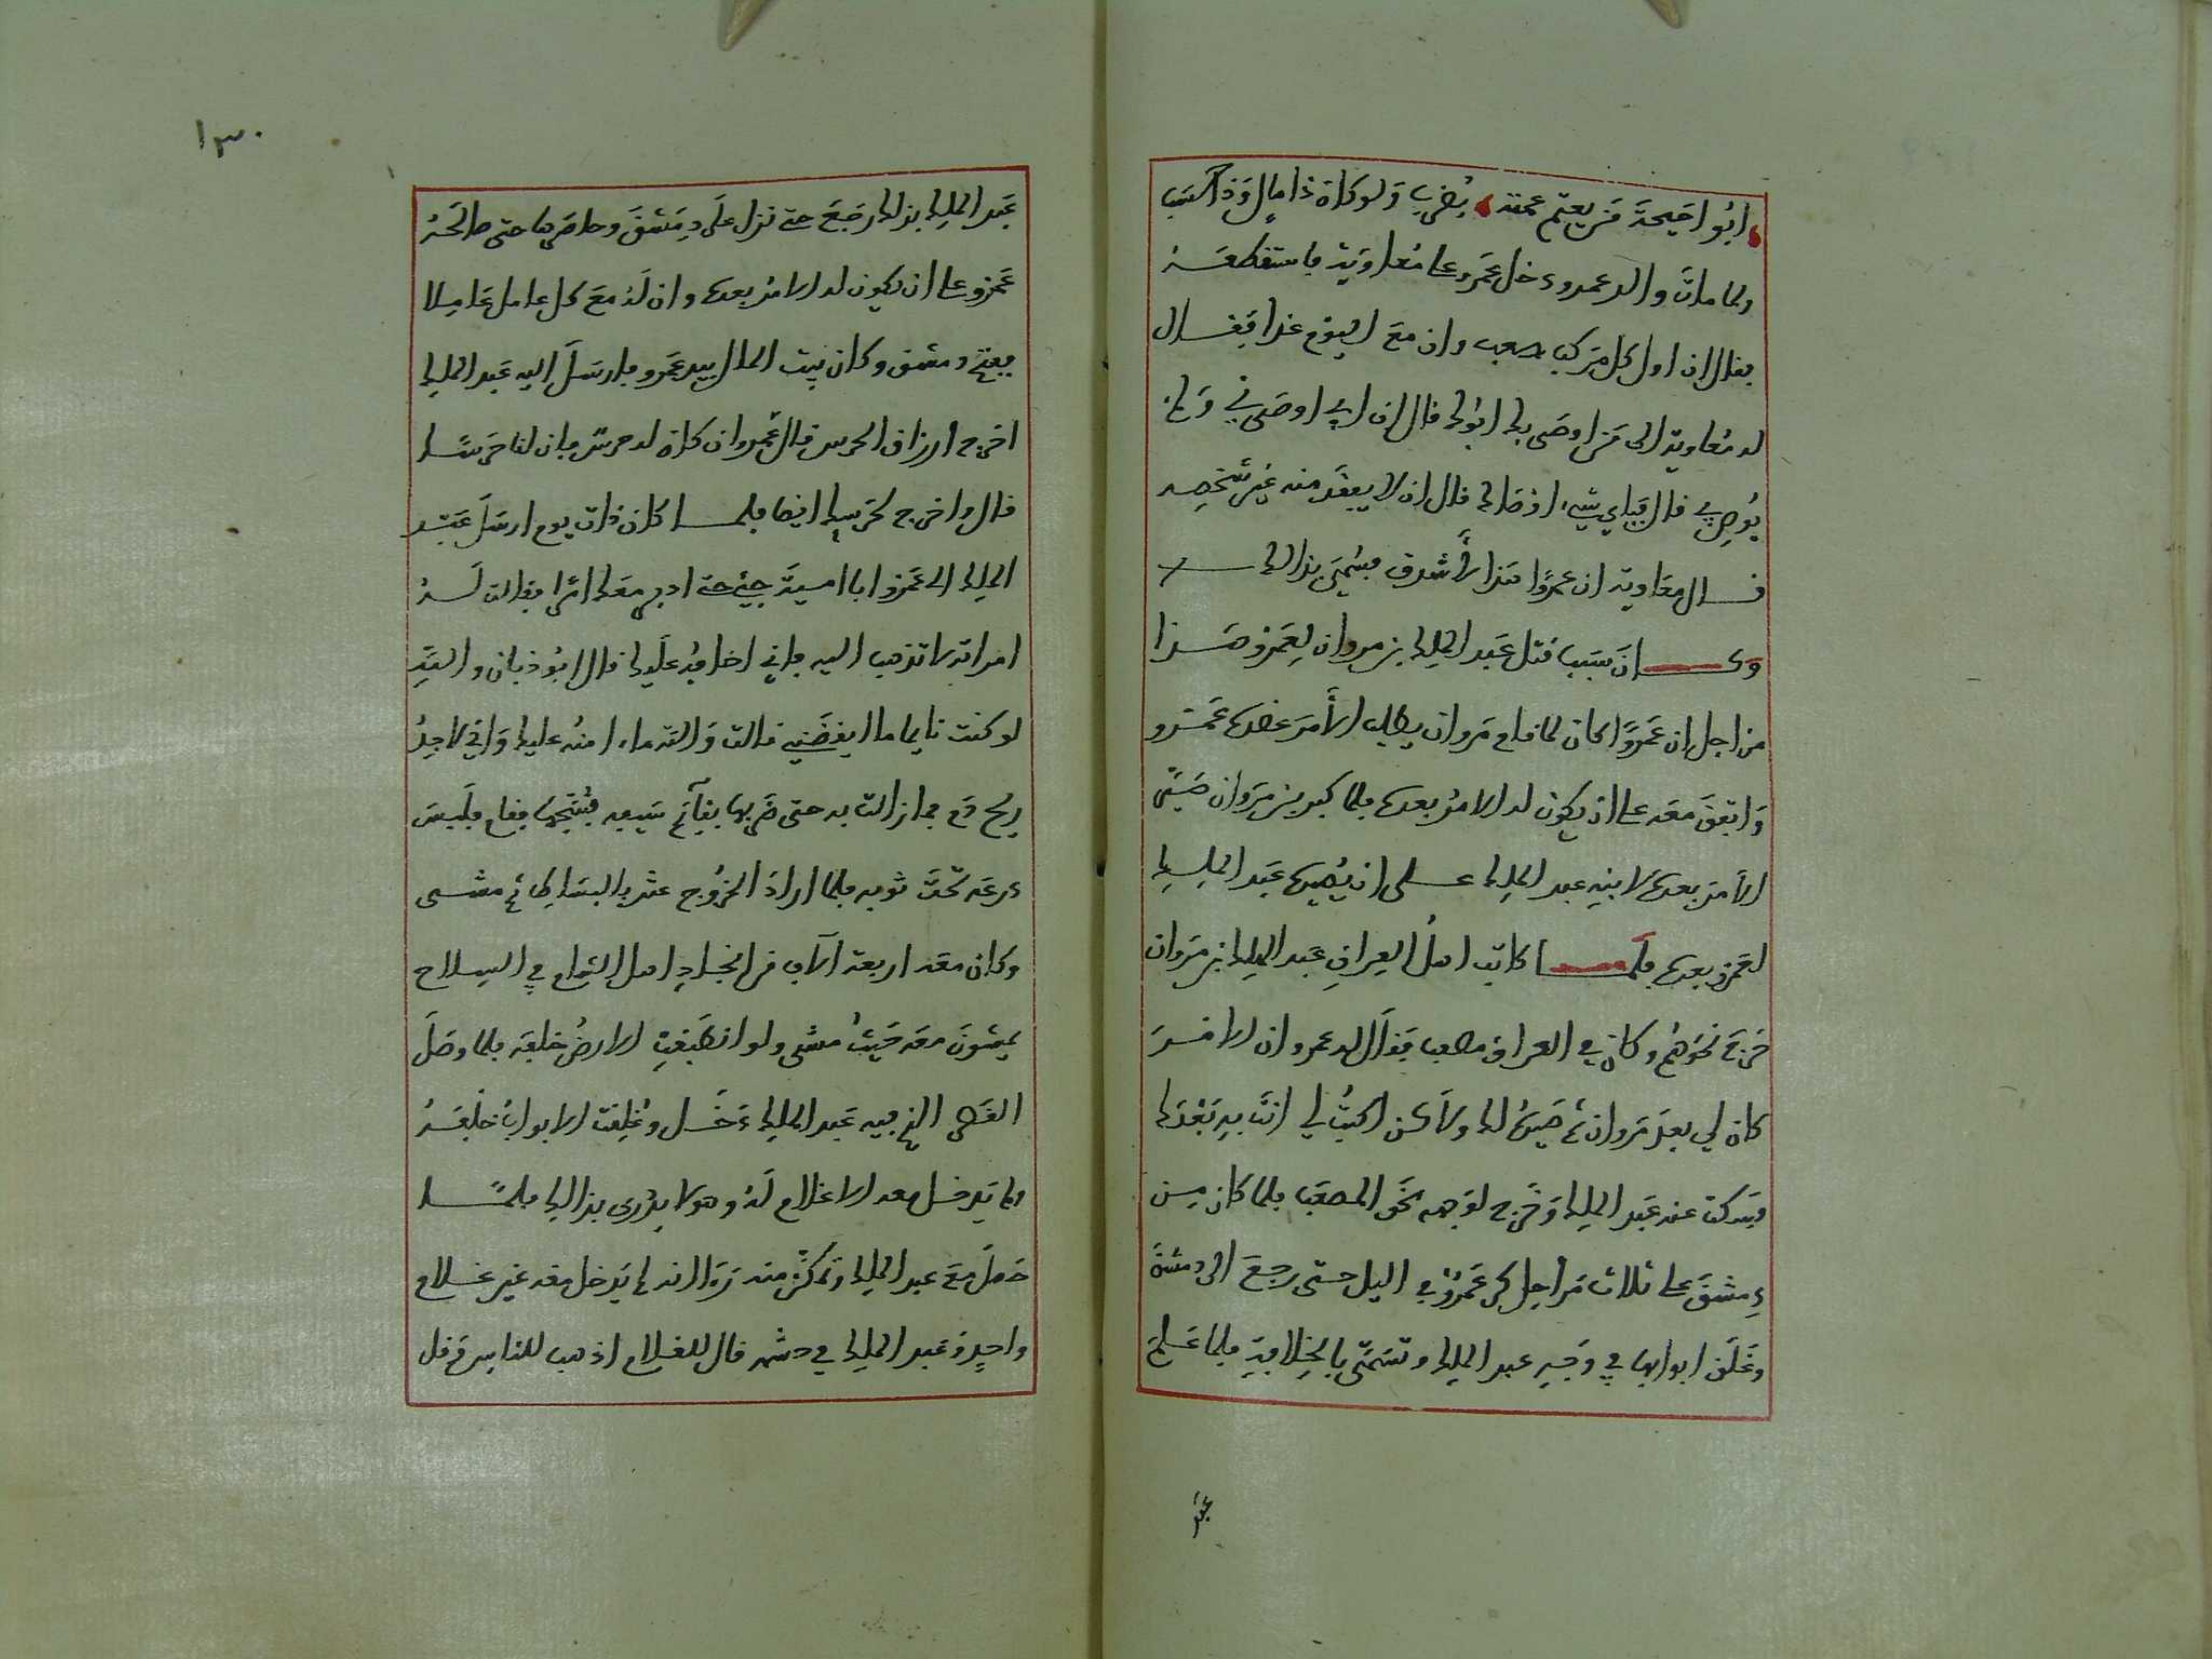 ابُو احَيحَةَ مَن يعتم عمته يُضرَب وَلو كان ذا مالٍ وَذا نسَب
ولما ماتَ والد عمرو دخل عَمرو على مُعاوِيَة فاستنطقَهُ
فقال ان اول كل مَركب صعب وان معَ اليوم غدا فقال
له مُعاوية الى مَن اوصَى بك ابُوك قال ان ابي اوصَى اِليَّ وَلم
يُوصِ بي قال فَباي شيء اوصَاك قال ان لا يفقد منه غير شخصِه
فقال معَاوية ان عمرًا هَذا لأشدق فسُمّيَ بذالك
وَكانَ سَبَب قتل عَبد الملِك بن مروان لِعَمرو هَذا
من اجل ان عَمرًا كان لما قام مَروان يطلب الأمرَ عضده عَمرو
وَاتفقَ معَه على ان يكون له الامرُ بعده فلما كبر بن مَروان صَيَّر
الأمرَ بعده لابنِه عبد الملِك على ان يُصيره عَبد الملِك
لعَمرو بعده فلَما كاتبَ اهلُ العِراقِ عبد الملِك بن مَروان
خرَجَ نحوَهُم وكان في العراق مصعب فقالَ له عمرو ان الامرَ
كان لي بعدَ مَروان ثم صَيرهُ لك ولاكن اكتبْ لي انتَ بهِ بَعْدَك
فسَكت عنه عَبد الملِك وَخرج لوَجهه نحوَ المصعَب فلما كان مِن
دِمشقَ على ثلاث مَراحِل كر عَمرٌو في اليل حتى رجعَ الى دمشق
وغَلق ابوابها في وَجهِ عبد الملِك وتسَمّى بالخِلافةِ فلما علم
عَبد
١٣٠
عَبد الملِك بذلك رجَعَ حتى نزل علَى دِمَشقَ وحاصَرها حتى صالحَهُ
عَمرو على ان يكون له الامرُ بعده وان لَهُ معَ كل عامل عَامِلا
ففتح دمشق وكان بيت المال بيد عَمرو فارسَلَ اليه عَبد الملِك
اخرج ارزاق الحرس فقال عَمرو ان كان له حرسٌ فان لنا حَرسًا
قال واخرج لحَرسِك ايضا فلما كان ذات يوم ارسَلَ عَبد
الملِك الى عَمرو ابا اميةَ جئ حتى ادبر معَك امرا فقالت لَهُ
امراته لا تذهب اليه فاني اخافُه عليك قال ابُو ذبان والله
لو كنت نايما ما ايقضَني قالت وَالله ما امنه عليك وَاني لاجدُ
ريح دَم فما زالت به حتى ضَربها بقآئم سَيفِه فشَجها فقام فلَبسَ
درعَه تحتَ ثوبه فلما ارادَ الخرُوج عثر بالبسَاط ثم مشى
وكان معَه اربعة الآف من انجادِ اهل الشام في السِلاح
يمشونَ معَه حَيثُ مشى ولو انطبَقت الارضُ خلفَه فلما وصَلَ
القصر الذي فيه عَبد الملِك دَخل وغُلِقت الابوابُ خلفَهُ
ولم يَدخل معه الا غلام لهُ وهو لا يدْري بذالِك فلمّا
حَصلَ معَ عبد الملِك وَتمكنَ منه زَال انه لم يَدخل معَه غير غلام
واحِد وَعبد الملِك في حشمه قال للغلام اذهب للناس وَقل